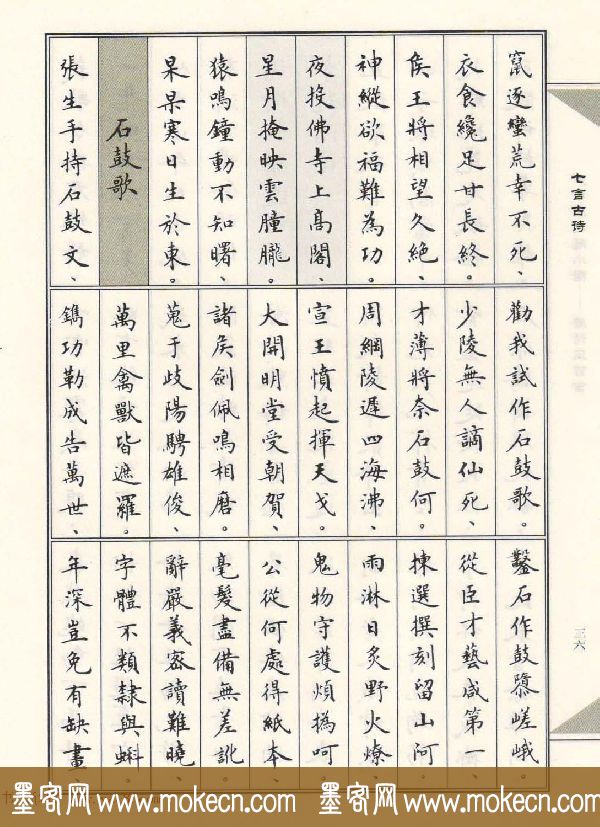 七言古诗
竄逐蠻荒幸不死、
衣食纔足甘長終。
侯王將相望久絕、
神縱欲福難為功。
夜投佛寺上高閣、
星月掩映雲朣朧。
猿鳴鐘動不知曙、
杲杲寒日生於東。
石鼓歌
張生手持石鼓文、
勸我試作石鼓歌。
少陵無人謫仙死、
才薄將奈石鼓何。
周綱陵遲四海沸、
宣王憤起揮天戈。
大開明堂受朝賀、
諸侯劍佩鳴相磨。
蒐于岐陽騁雄俊、
萬里禽獸皆遮羅。
鐫功勒成告萬世、
鑿石作鼓隳嵯峨。
從臣才藝咸第一、
揀選撰刻留山阿。
雨淋日炙野火燎、
鬼物守護煩撝呵。
公從何處得紙本、
毫髮盡備無差訛。
辭嚴義密讀難曉、
字體不類隸與蝌。
年深豈免有缺畫、
三六
墨客网 www.mokecn.com 墨客网 www.mokecn.com